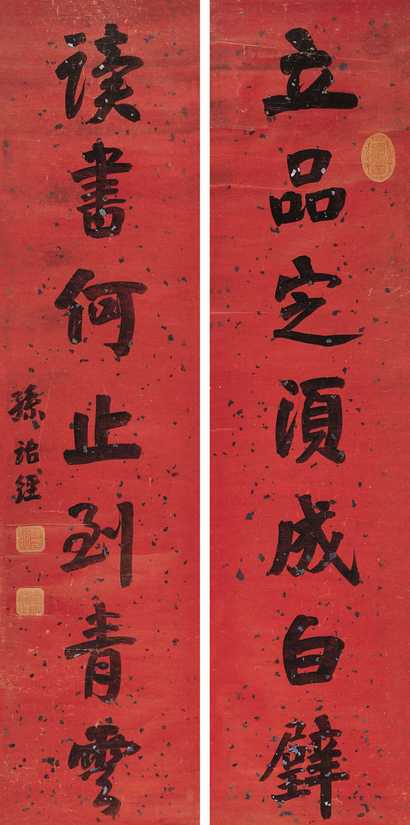 立品定須成白璧
讀書何止到青雲
孫詒經